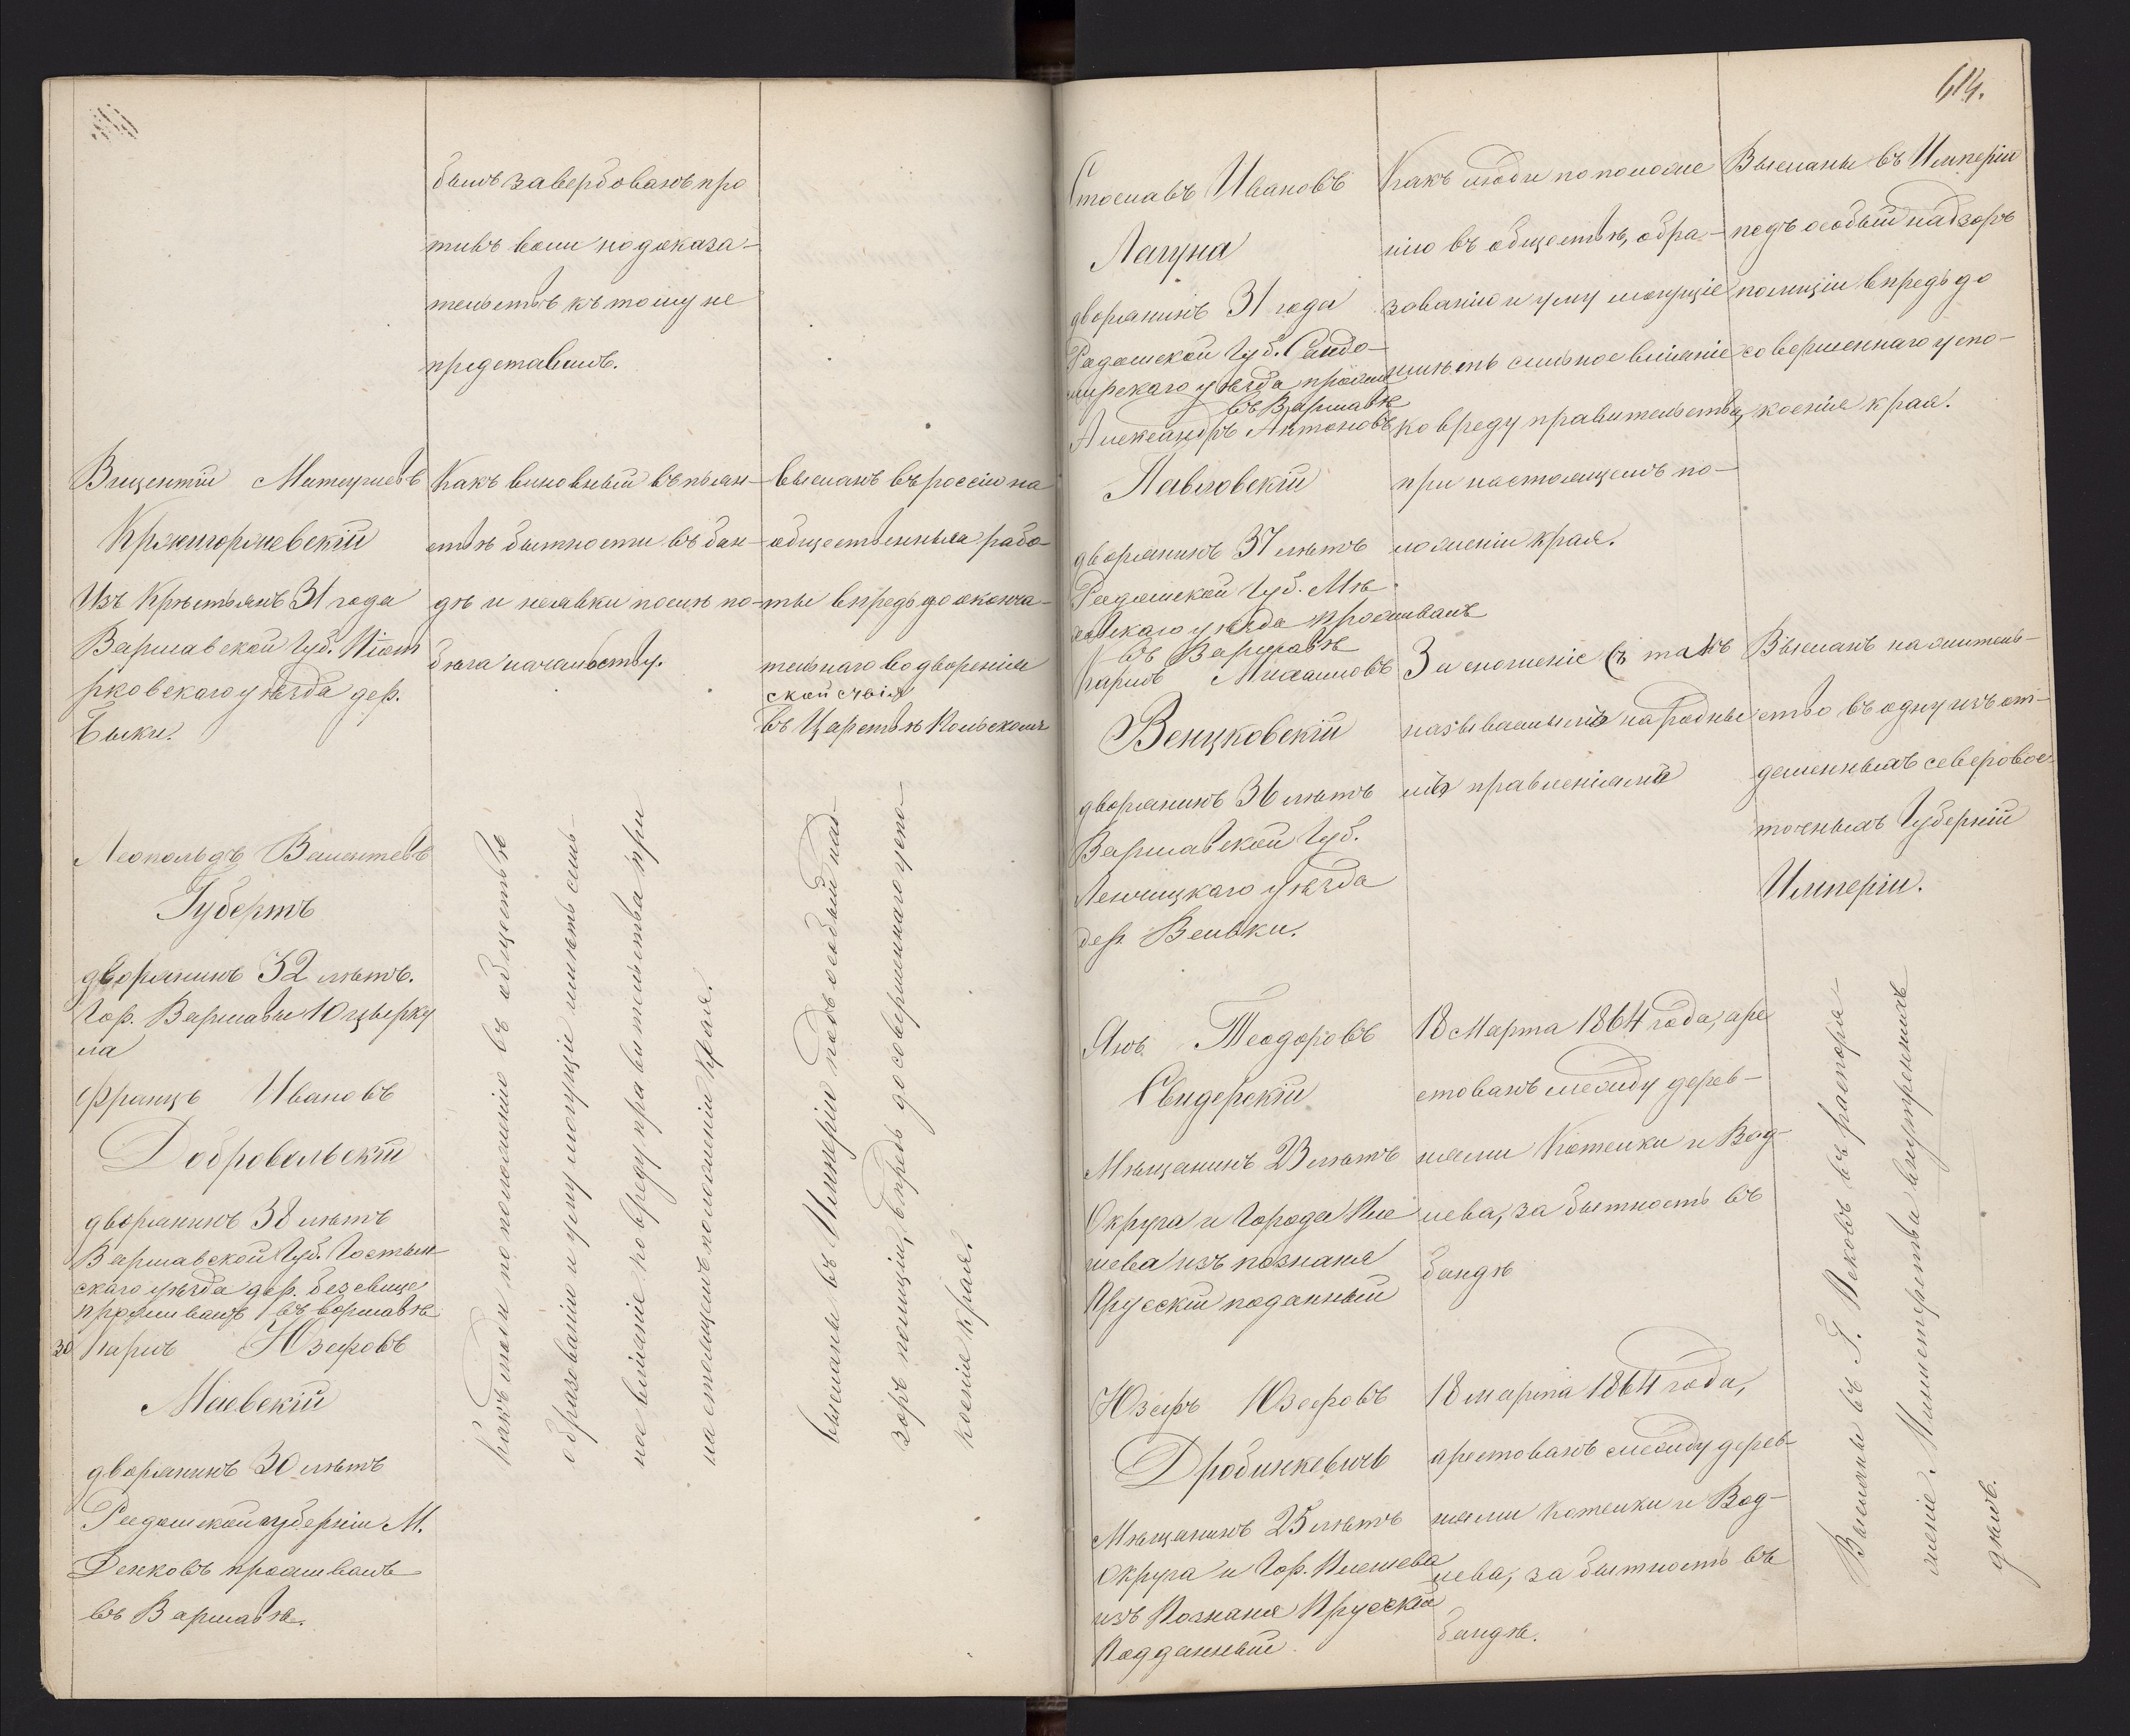 былъ завербованъ про
тивъ воли но доказа-
тельствъ къ тому не
представилъ.
Вицентій Матеушевъ
Кржигоржевскій
Изъ Крестьянъ 31 года
Варшавской Губ. Піот
рковскаго уѣзда дер.
Быки.
Какъ виновный въ пьян-
ствѣ бытности въ бан-
дѣ и неявки послѣ по-
бѣга начальству.
высланъ въ россію на
общественныя рабо-
ты впредь до оконча-
тельнаго водворенія
въ Царствѣ Польскомъ
Леопольдъ Валентевъ
Губертъ
дворянинъ 32 лѣтъ.
Гор. Варшавы 10 цырку
ла
Францъ Ивановъ
Добровольскій
дворянинъ 38 лѣтъ
Варшавской Губ. Гостын
скаго уѣзда дер.
проживалъ въ воршавѣ
30 Карлъ Юзефовъ
Маевскій
дворянинъ 30 лѣтъ
Радомской губерніи М.
Денковъ проживалъ
въ Варшавѣ.
Какъ люди по положенію въ обществѣ
образованію и уму могущіе имѣть силь-
на вліяніе ко вреду правительства при
настоящемъ положеніи Края.
высланы въ Имперію подъ особый над-
зоръ полиціи, впредь до совершеннаго успо-
коенія края.
614.
Стославъ Ивановъ
Лагуна
дворянинъ 31 года
Радомской Губ. Сандо-
мирскаго уѣзда прожив
въ Варшавѣ
Александръ Антоновъ
Павловскій
дворянинъ 37 лѣтъ
Радомской Губ. Мѣ-
ховскаго уѣзда проживалъ
въ Варшавѣ
Какъ люди по положе
нію въ обществѣ, обра-
зованію и уму могущіе
имѣть сильное вліяніе
ко вреду правительства,
при настоящемъ по-
ложеніи края.
Высланы въ Имперію
подъ особый надзоръ
полиціи впредь до
совершеннаго успо-
коенія края.
Карлъ Михаиловъ
Венцковскій
дворянинъ 36 лѣтъ
Варшавской Губ.
Ленчицкаго уѣзда
дер. Вельки.
За сношеніе съ такъ
называемымъ народны
мъ правленіемъ
Высланъ на житель-
ство въ одну изъ от-
даленныхъ северовос-
точныхъ Губерній
Имперіи.
Янъ Теодоровъ
Свидерскій
Мѣщанинъ 23 лѣтъ
Округа и Города Пле
шева изъ познаня
Прусскій поданный
18 Марта 1864 года, аре
стованъ между дерев-
нями Котенки и Вод-
цева, за бытность въ
бандѣ
Юзефъ Юзефовъ
Дробинкевичъ
Мѣщанинъ 25 лѣтъ
Округа и Гор. Плешева
изъ Познаня Прусскій
Подданный
18 марта 1864 года,
арестованъ между дерев-
нями котенки и Вод-
цева, за бытность въ
бандѣ.
Высланы въ Г. Псковъ въ распоря-
женіе Министерства внутреннихъ
дѣлъ.